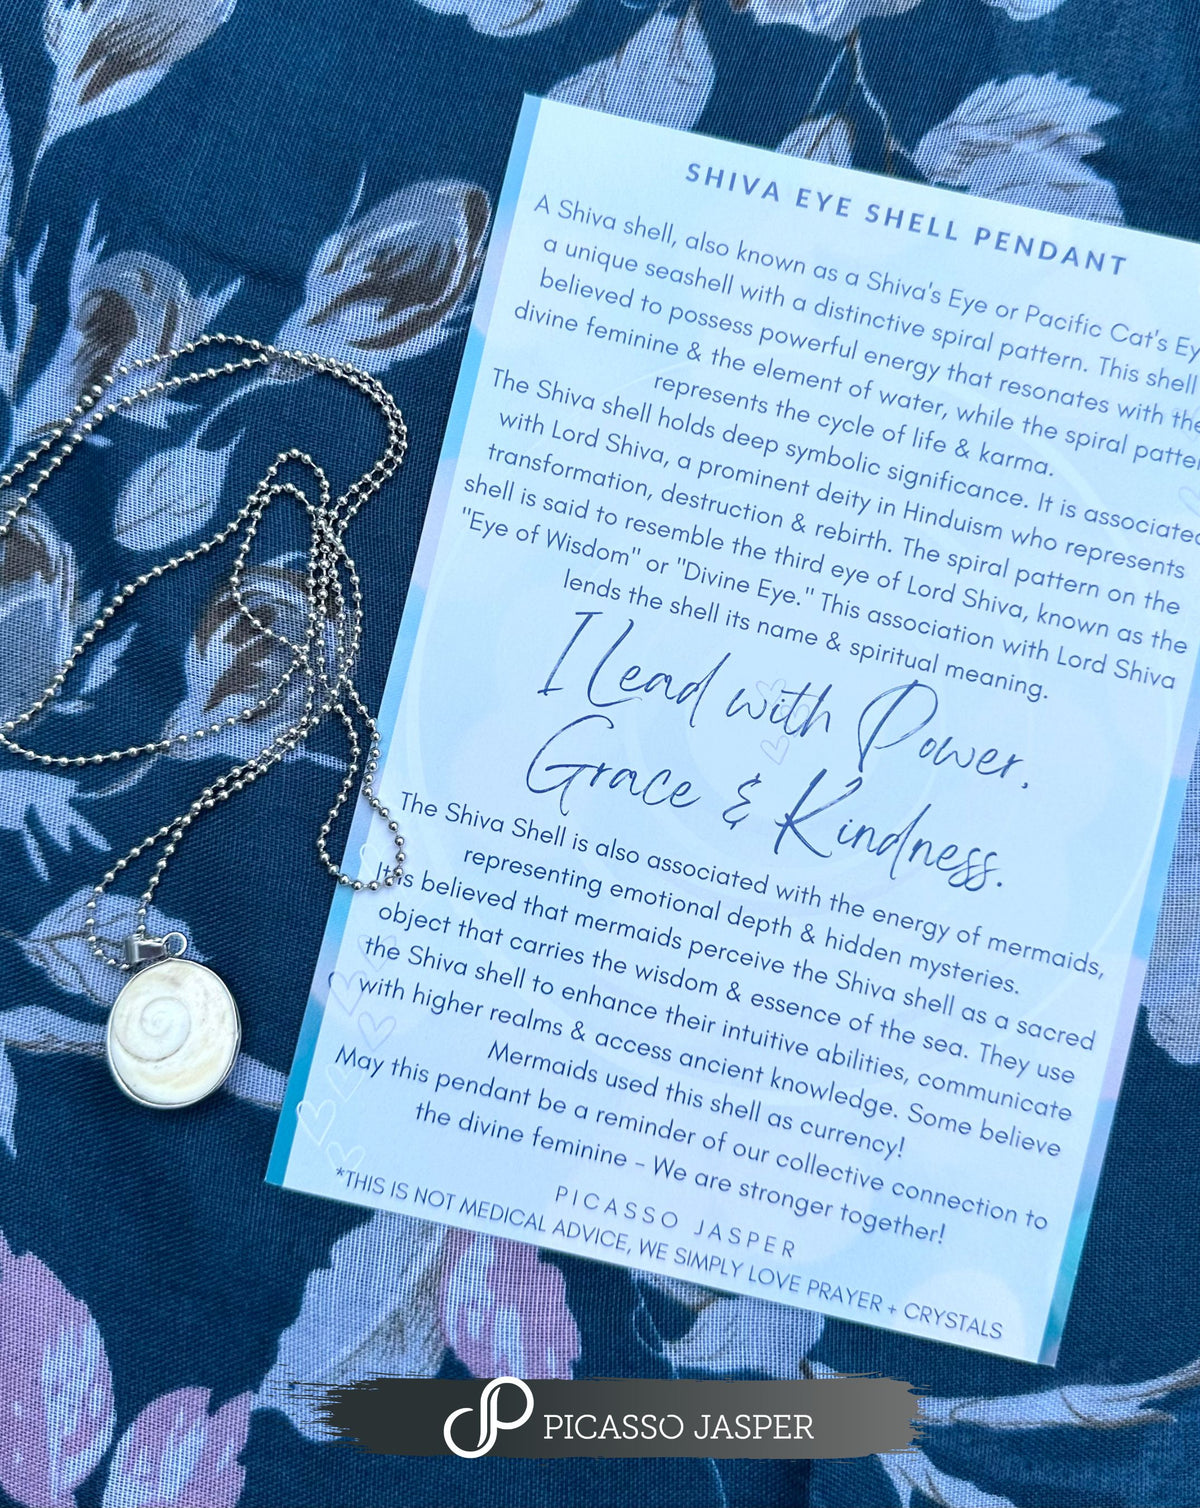 SHIVA EYE SHELL PENDANT
A Shiva shell, also known as a Shiva's Eye or Pacific Cat's Ey
a unique seashell with a distinctive spiral pattern. This shell
believed to possess powerful energy that resonates with the
divine feminine & the element of water, while the spiral patter
represents the cycle of life & karma.
The Shiva shell holds deep symbolic significance. It is associated
with Lord Shiva, a prominent deity in Hinduism who represents
transformation, destruction & rebirth. The spiral pattern on the
shell is said to resemble the third eye of Lord Shiva, known as the
"Eye of Wisdom" or "Divine Eye." This association with Lord Shiva
lends the shell its name & spiritual meaning.
I Lead with Power,
Grace & Kindness.
The Shiva Shell is also associated with the energy of mermaids,
representing emotional depth & hidden mysteries.
It is believed that mermaids perceive the Shiva shell as a sacred
object that carries the wisdom & essence of the sea. They use
the Shiva shell to enhance their intuitive abilities, communicate
with higher realms & access ancient knowledge. Some believe
Mermaids used this shell as currency!
May this pendant be a reminder of our collective connection to
the divine feminine - We are stronger together!
PICASSO JASPER
*THIS IS NOT MEDICAL ADVICE, WE SIMPLY LOVE PRAYER + CRYSTALS
PICASSO JASPER